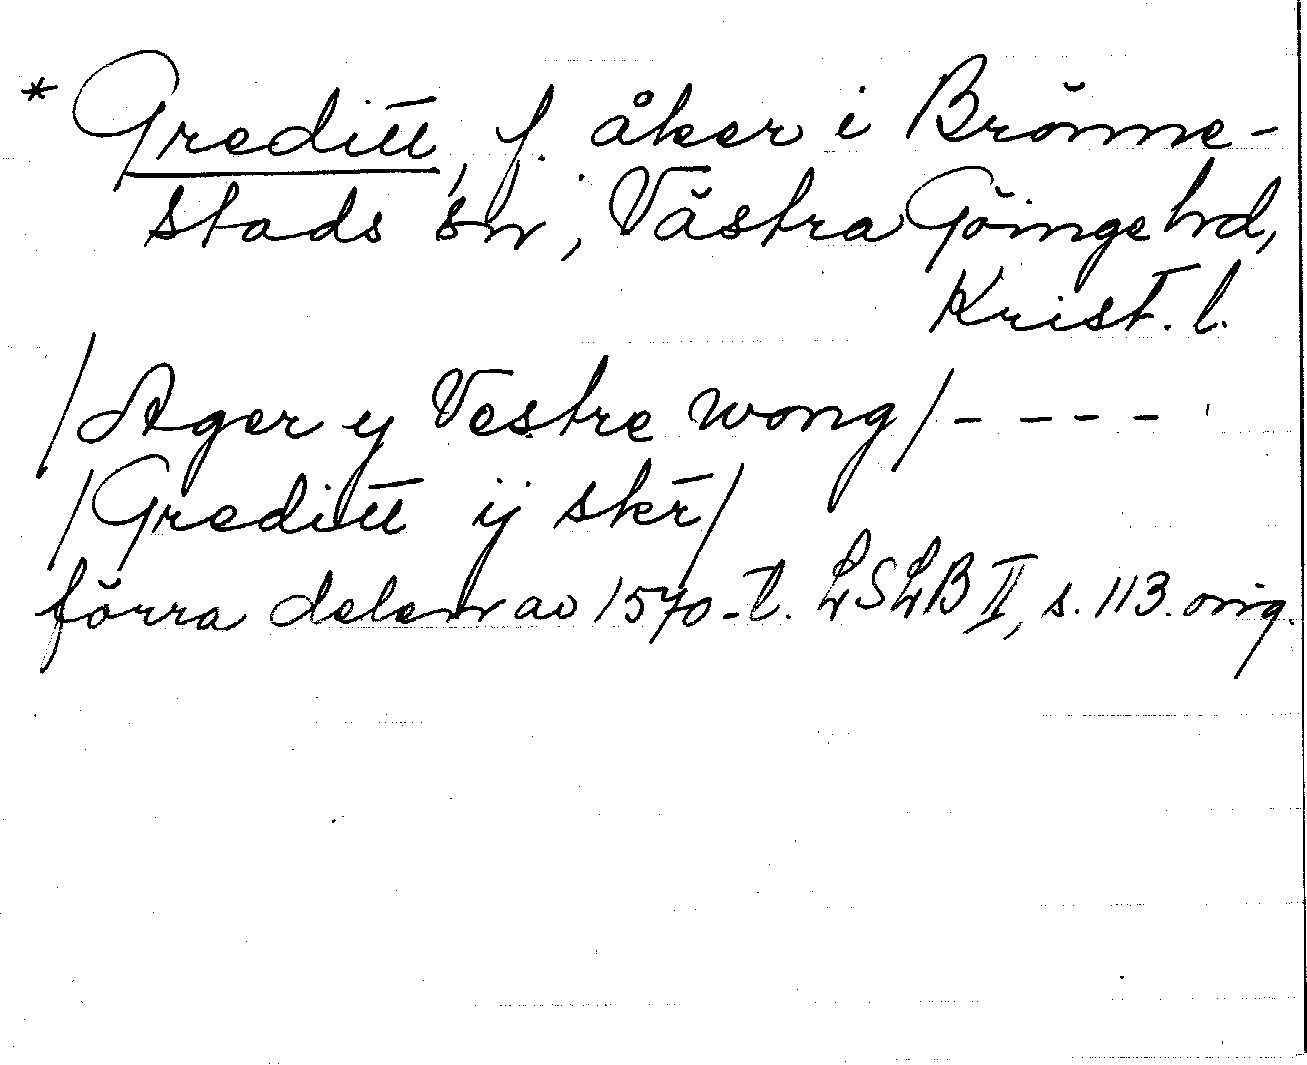 * Greditt, f. åker i Brönne-
stads sn, Västra Göinge hd,
Krist. l.
/Ager y Vestre wong/ - - - -
/Greditt ij skr/
förra delen av 1570-t. LSLB II, s. 113. orig.